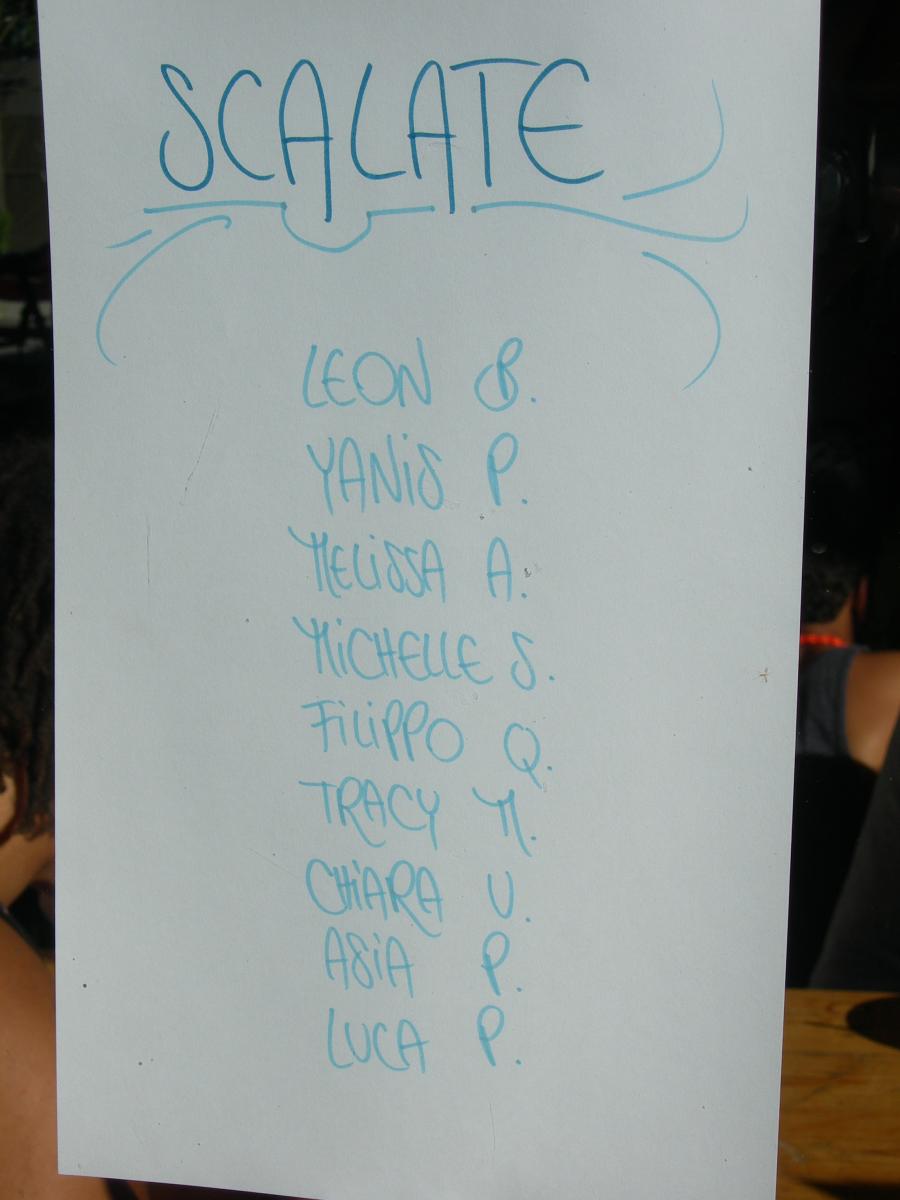 SCALATE
LEON B.
YANiS P.
MELiSSA A.
MiCHELLE S.
FiLiPPO Q.
TRACY M.
CHiARA U.
ASiA P.
LUCA P.